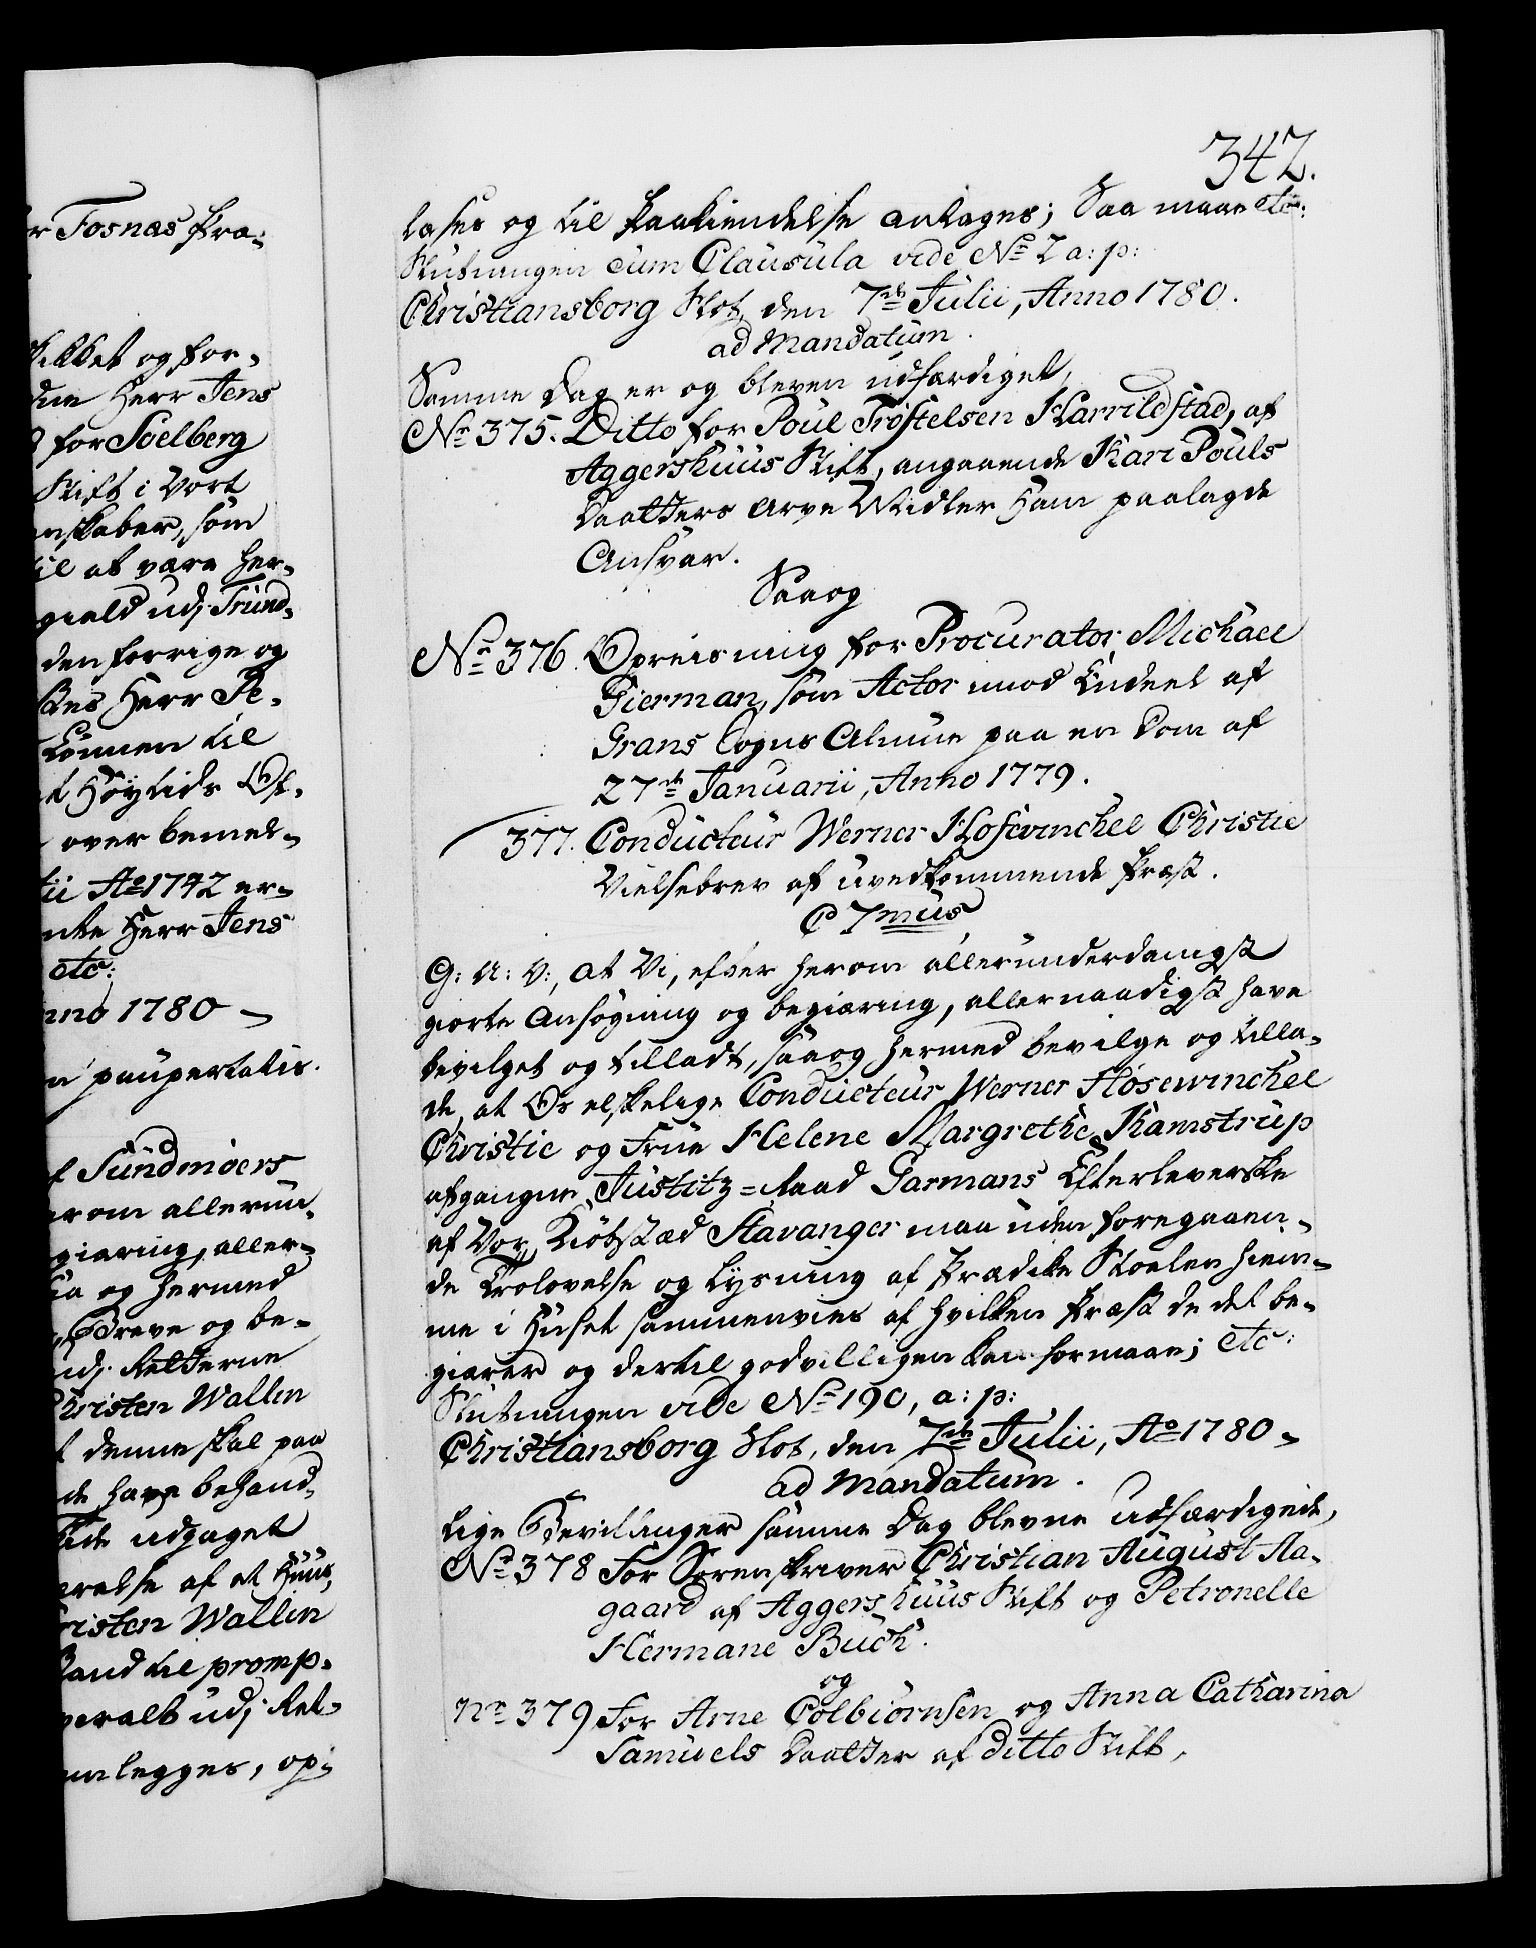 342.
læses og til Paakiendelse antages; Saa maae etc:
Slutningen cum Clausula vide No 2 a: p:
Christiansborg Slot, den 7de Julii, Anno 1780.
ad mandatum.
Samme Dag er og bleven udfærdiget,
No 375. Ditto for Poul Trostelsen Harrildstad, af
Aggershuus Stift, angaaende Kari Pouls
Daatters Arve Midler ham paalagde
Ansvar.
Saaog
No 376. Opreisning for Procurator Michael
Gierman, som Actor imod Endeel af
Grans Sogns Almue paa en Dom af
27de Januarii, Anno 1779.
377. Conducteur Werner Hosewinchel Christie
Vielsebrev af uvedkommende Præst.
C 7mus
G: A: V:, At Vi, efter herom allerunderdanigst
giorte Ansøgning og begiæring, allernaadigst have
bevilget og tilladt, saa og hermed bevilge og tilla-
de, at Os elskelige Conducteur Werner Hosewinchel
Christie og Frue Helene Margrethe Kamstrup
afgangne Justitz-Raad Garmans Efterleverske
af Vor Kiøbstæd Stavanger maa uden foregaaen-
de Trolovelse og Lysning af Prædike Stoelen hiem-
me i Huset sammenvies af hvilken Præst de det be-
giærer og dertil godvilligen kan formaae; etc:
Slutningen vide No 190, a: p:
Christiansborg Slot, den 7de Julii, Ao 1780
ad mandatum.
Lige Bevillinger samme Dag blevne udfærdigede,
No 378 For Sorenskriver Christian August Aa-
gaard af Aggershuus Stift og Petronelle
Hermane Buch.
og
No 379 For Arne Colbiørnsen og Anna Catharina
Samuels Daatter af ditto Stift,
r Fosnæs Præ-
kikket og for-
Herr Jens
for Soelberg
Stift i Vort
nskaber, som
til at være her-
gield udj Trund-
den forrige og
kes Herr Pe-
kommen til
Høytids Of-
over bemel-
tii Ao 1742 er-
nke Herr Jens
etc:
nno 1780
n paupertatis.
f Sundmøers
erom allerun-
giæring, aller-
og hermed
Breve og be-
udj. Retterne
Christen Wallin
denne skal paa
de have behand-
udtaget
relse af et Huus,
risten Wallin
Vand til promp-
veralt udj Ret-
legges, op-